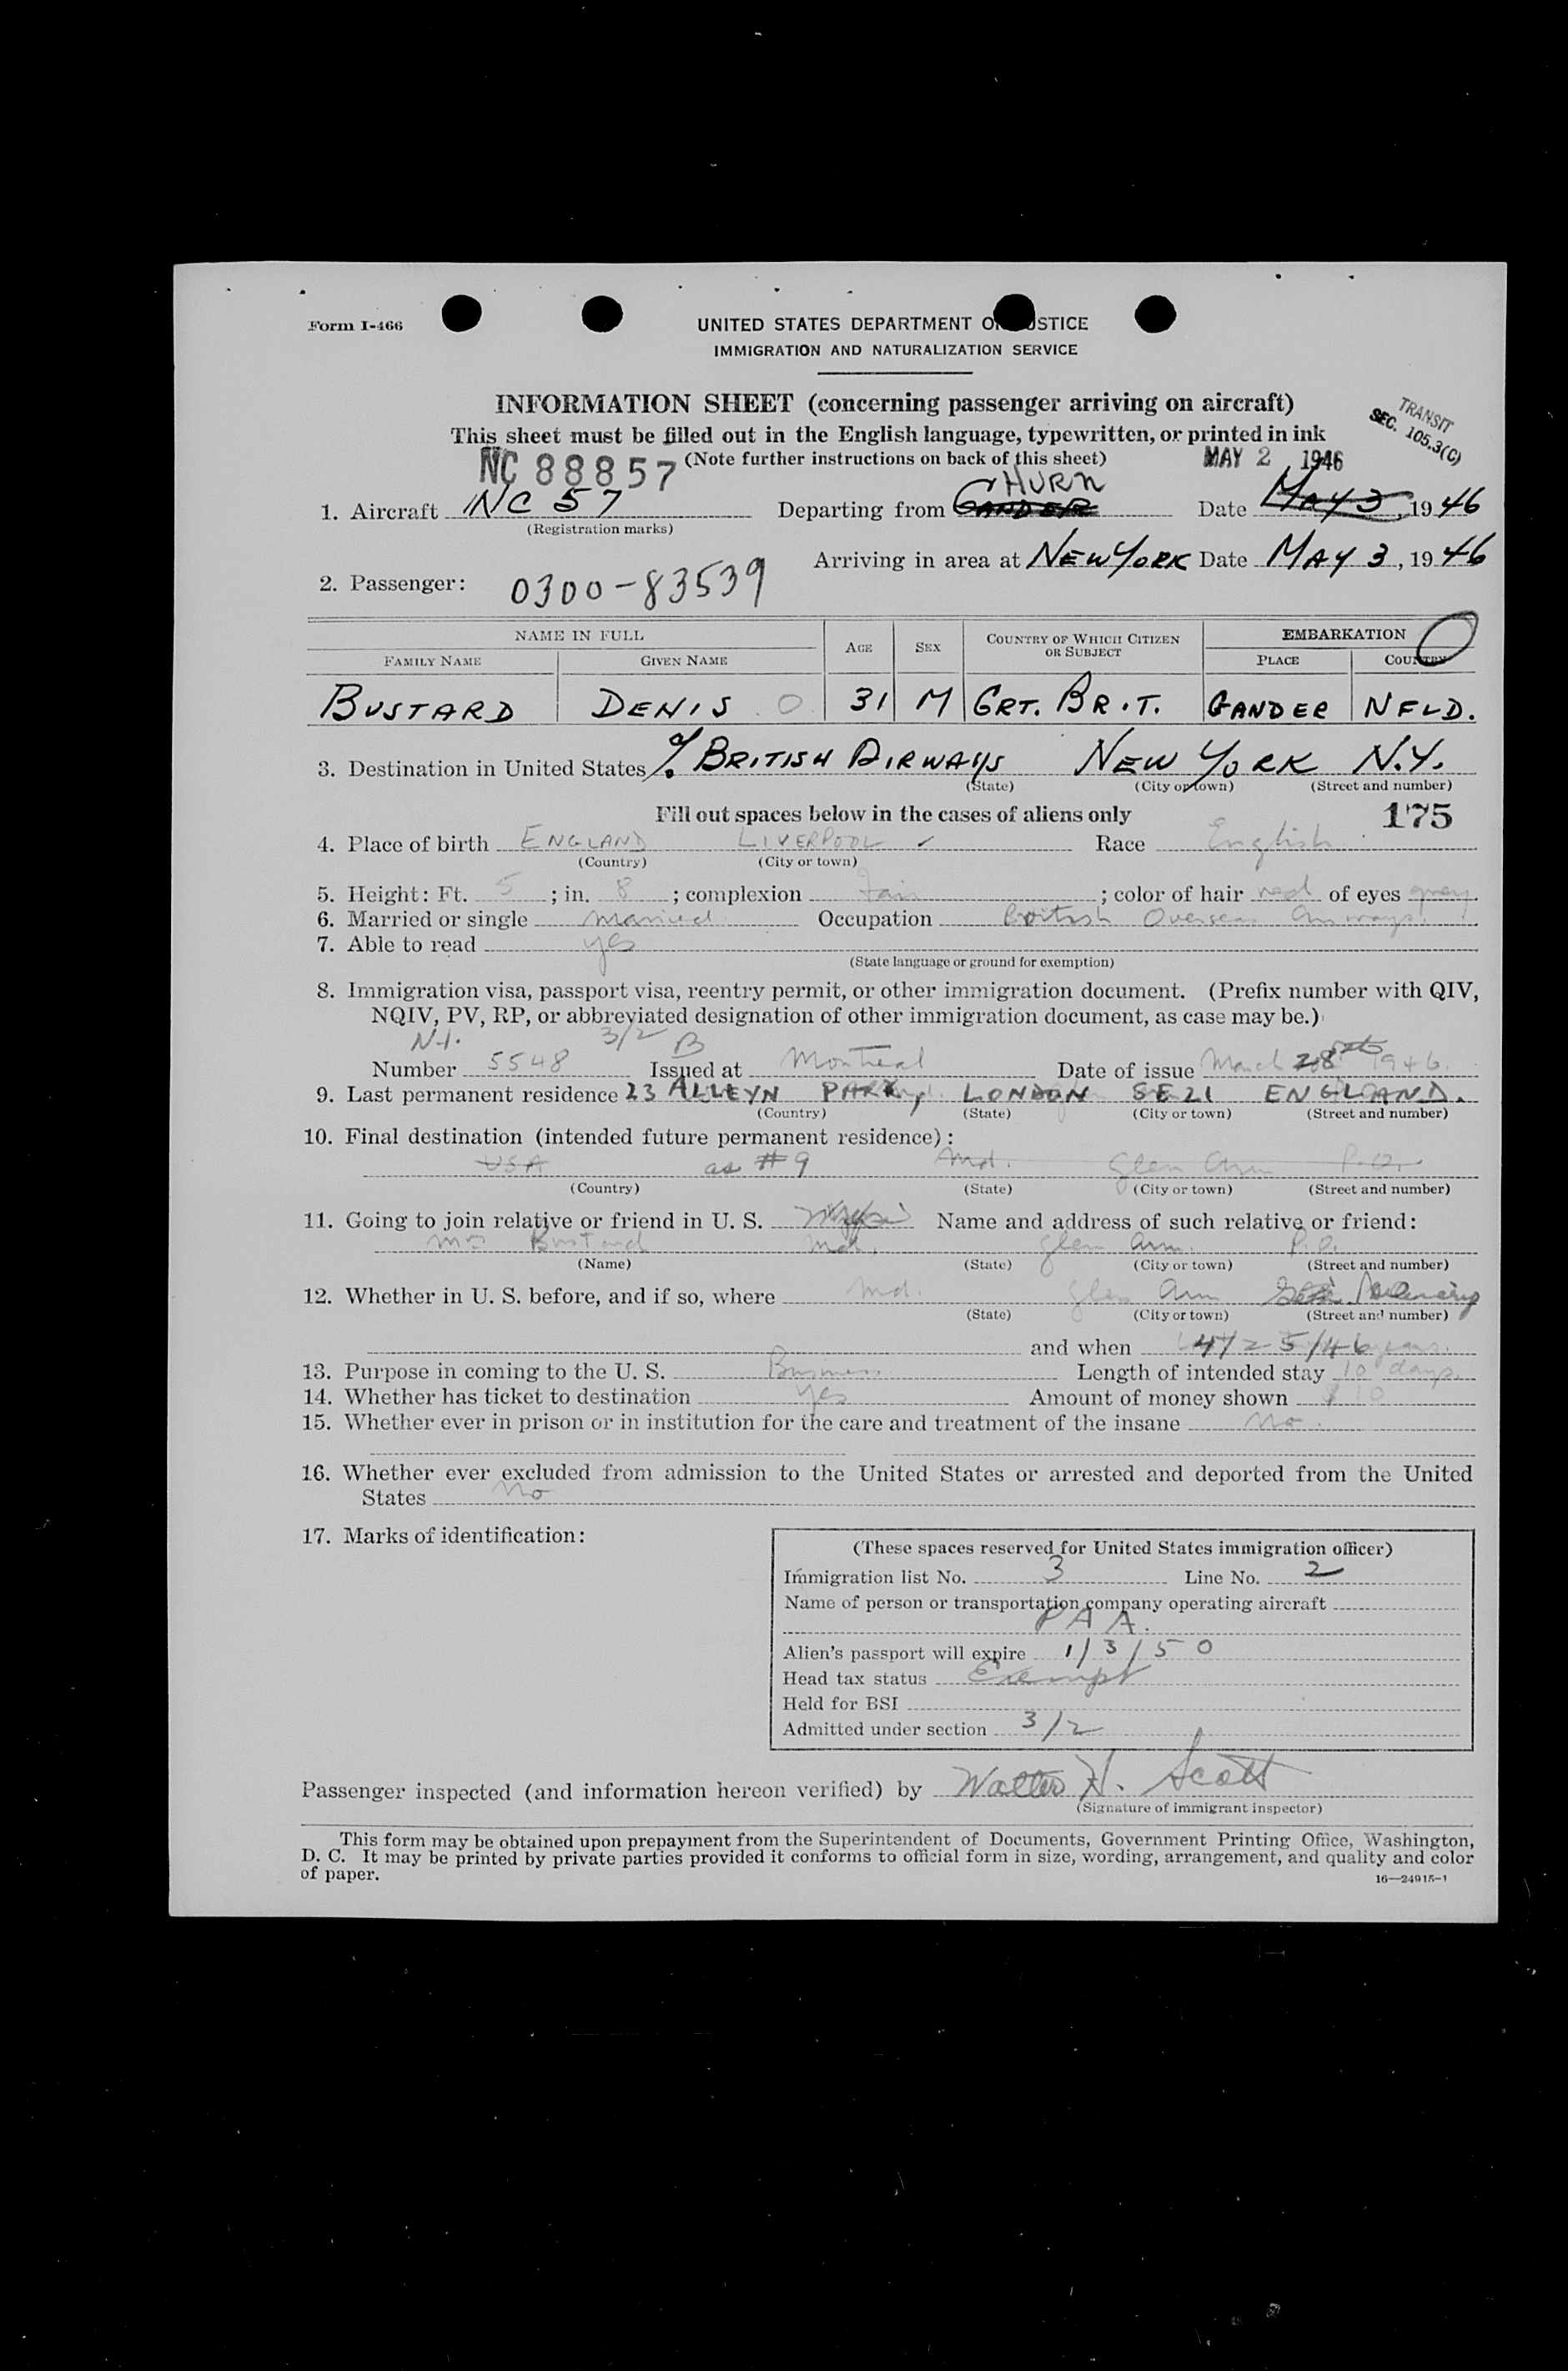 Form I-466
UNITED STATES DEPARTMENT OF JUSTICE
IMMIGRATION AND NATURALIZATION SERVICE
INFORMATION SHEET (concerning passenger arriving on aircraft)
TRANSIT
SEC. 105.3(C)
This sheet must be filled out in the English language, typewritten, or printed in ink
NC 88857 (Note further instructions on back of this sheet) MAY 2 1946
CHURN
1. Aircraft NC 57 Departing from GANDER Date MAY 3, 1946
(Registration marks)
Arriving in area at NEW YORK Date MAY 3, 1946
2. Passenger: 0300-83539
NAME IN FULL AGE SEX COUNTRY OF WHICH CITIZEN OR SUBJECT EMBARKATION
FAMILY NAME GIVEN NAME PLACE COUNTRY
BUSTARD DENIS O 31 M GRT. BRIT. GANDER NFLD.
3. Destination in United States % BRITISH AIRWAYS NEW YORK N.Y.
(State) (City or town) (Street and number)
Fill out spaces below in the cases of aliens only 175
4. Place of birth ENGLAND LIVERPOOL ✓ Race English
(Country) (City or town)
5. Height: Ft. 5; in. 8; complexion fair; color of hair red of eyes grey
6. Married or single married Occupation British Overseas Airways
7. Able to read yes
(State language or ground for exemption)
8. Immigration visa, passport visa, reentry permit, or other immigration document. (Prefix number with QIV,
NQIV, PV, RP, or abbreviated designation of other immigration document, as case may be.)
3/2 B
Number 5548 Issued at Montreal Date of issue March 28 1946
9. Last permanent residence 23 ALLEYN PARK, LONDON SE21 ENGLAND.
(Country) (State) (City or town) (Street and number)
10. Final destination (intended future permanent residence):
USA as #9 Md. Glen Arm P.O.
(Country) (State) (City or town) (Street and number)
11. Going to join relative or friend in U. S. Name and address of such relative or friend:
Mrs Bustard Md. Glen Arm. P.O.
(Name) (State) (City or town) (Street and number)
12. Whether in U. S. before, and if so, where Md. Glen Arm
(State) (City or town) (Street and number)
and when
13. Purpose in coming to the U. S. Business Length of intended stay 10 days.
14. Whether has ticket to destination yes Amount of money shown $10
15. Whether ever in prison or in institution for the care and treatment of the insane No.
16. Whether ever excluded from admission to the United States or arrested and deported from the United
States No
17. Marks of identification:
(These spaces reserved for United States immigration officer)
Immigration list No. 3 Line No. 2
Name of person or transportation company operating aircraft
PAA.
Alien's passport will expire 1/3/50
Head tax status Exempt
Held for BSI
Admitted under section 3/2
Passenger inspected (and information hereon verified) by Walter H. Scott
(Signature of immigrant inspector)
This form may be obtained upon prepayment from the Superintendent of Documents, Government Printing Office, Washington,
D. C. It may be printed by private parties provided it conforms to official form in size, wording, arrangement, and quality and color
of paper.
16—24915-1